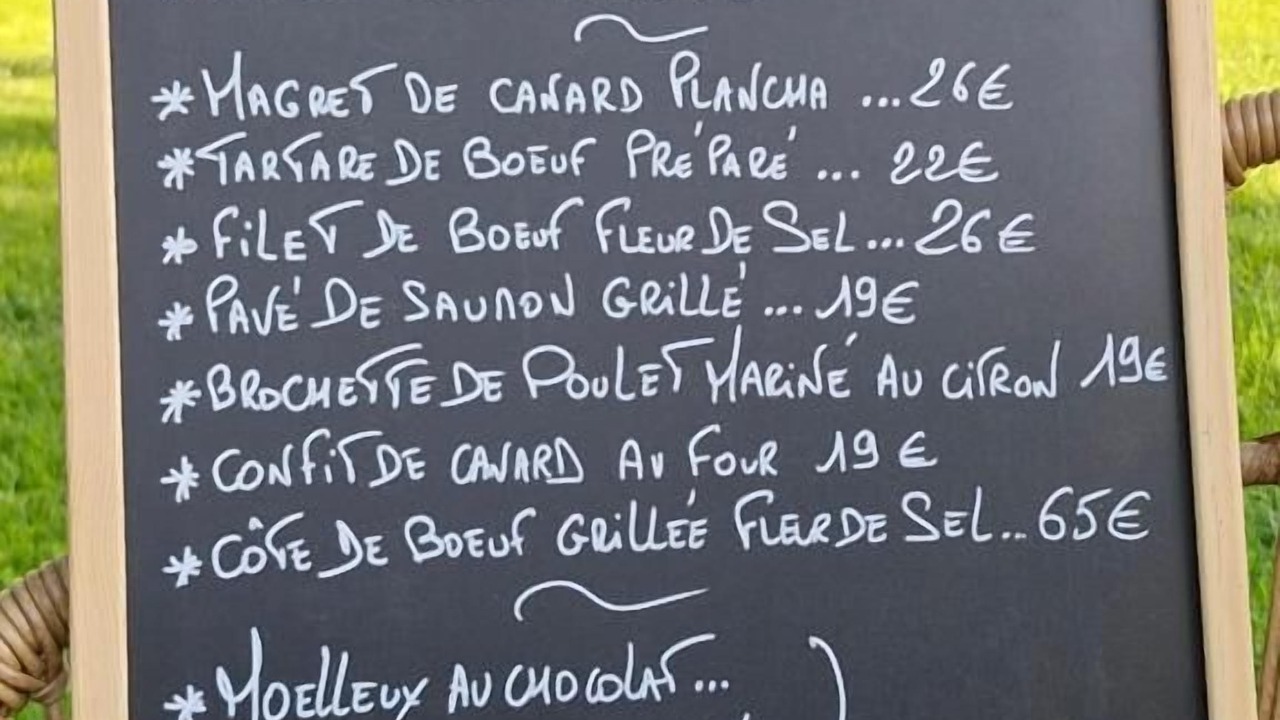 * MAGRET DE CANARD PLANCHA ...26€
* TARTARE DE BOEUF PRÉPARÉ ... 22€
* FILET DE BOEUF FLEUR DE SEL ... 26€
* PAVÉ DE SAUMON GRILLÉ ... 19€
* BROCHETTE DE POULET MARINÉ AU CITRON 19€
* CONFIT DE CANARD AU FOUR 19€
* CÔTE DE BOEUF GRILLÉE FLEUR DE SEL .. 65€
* MOELLEUX AU CHOCOLAT ... )